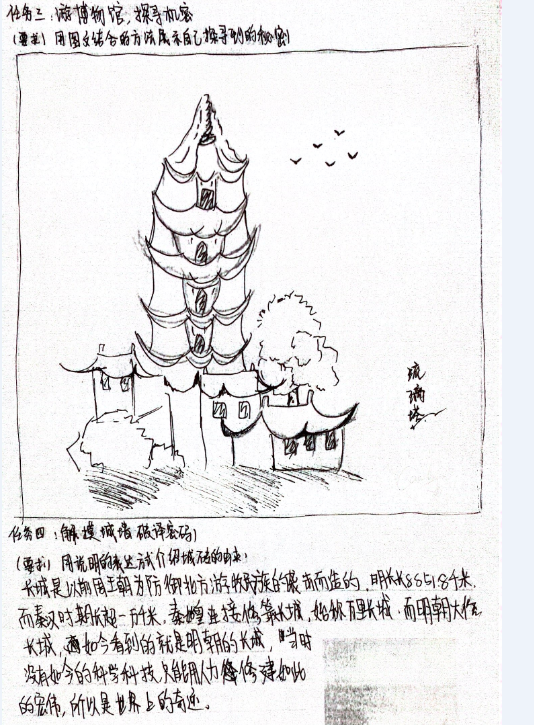 任务三:游博物馆,探寻机密
(要求)用图文结合的方法展示自己探寻到的秘密
琉璃塔
任务四:解摸城墙 破译密码
(要求)用说明的表达方式介绍城砖的由来:
长城是以前用王朝为防御北方游牧民族的袭击而造的,明长长8851.8千米,
而秦汉时期长超一万千米,秦皇连接修筑长城,始称万里长城,而明朝大修
长城,如今看到的就是明朝的长城,当时
没有如今的科学科技,只能用人力修建如此
的宏伟,所以是世界上的奇迹。